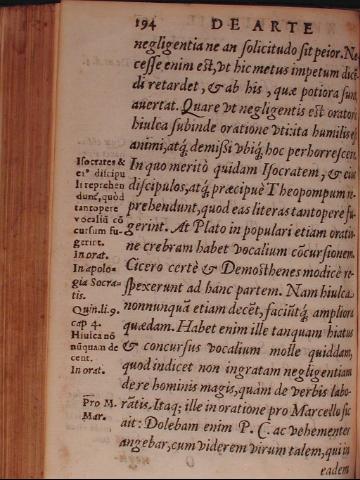 194 DE ARTE
negligentia ne an solicitudo sit peior. Ne
cesse enim est, vt hic metus impetum dicẽ
di retardet, & ab his, quæ potiora sunt
auertat. Quare vt negligentis est oratoris
hiulca subinde oratione vti: ita humilis eſt
animi, atq; demissi vbiq; hoc perhorrescere.
In quo meritò quidam Isocratem, & eius
discipulos, atq; præcipuè Theopompum re
prehendunt, quod eas literas tantopere fu-
gerint. At Plato in populari etiam oratio
ne crebram habet vocalium cõcursionem.
Cicero certè & Demosthenes modicè re-
spexerunt ad hanc partem. Nam hiulca
nonnunquã etiam decẽt, faciũtq; ampliora
quædam. Habet enim ille tanquam hiatus
& concursus vocalium molle quiddam,
quod indicet non ingratam negligentiam
de re hominis magis, quàm de verbis labo-
rãtis. Itaq; ille in oratione pro Marcello sic
ait: Dolebam enim P. C. ac vehementer
angebar, cum viderem virum talem, qui in
eadem
Isocrates &
eiº discipu
li reprehen
dunt, quòd
tantopere
vocaliũ cõ
cursum fu-
gerint.
In orat.
In apolo-
gia Socra-
tis.
Quin. li. 9.
cap 4.
Hiulca nõ
nũquam de
cent.
In orat.
Pro M.
Mar.